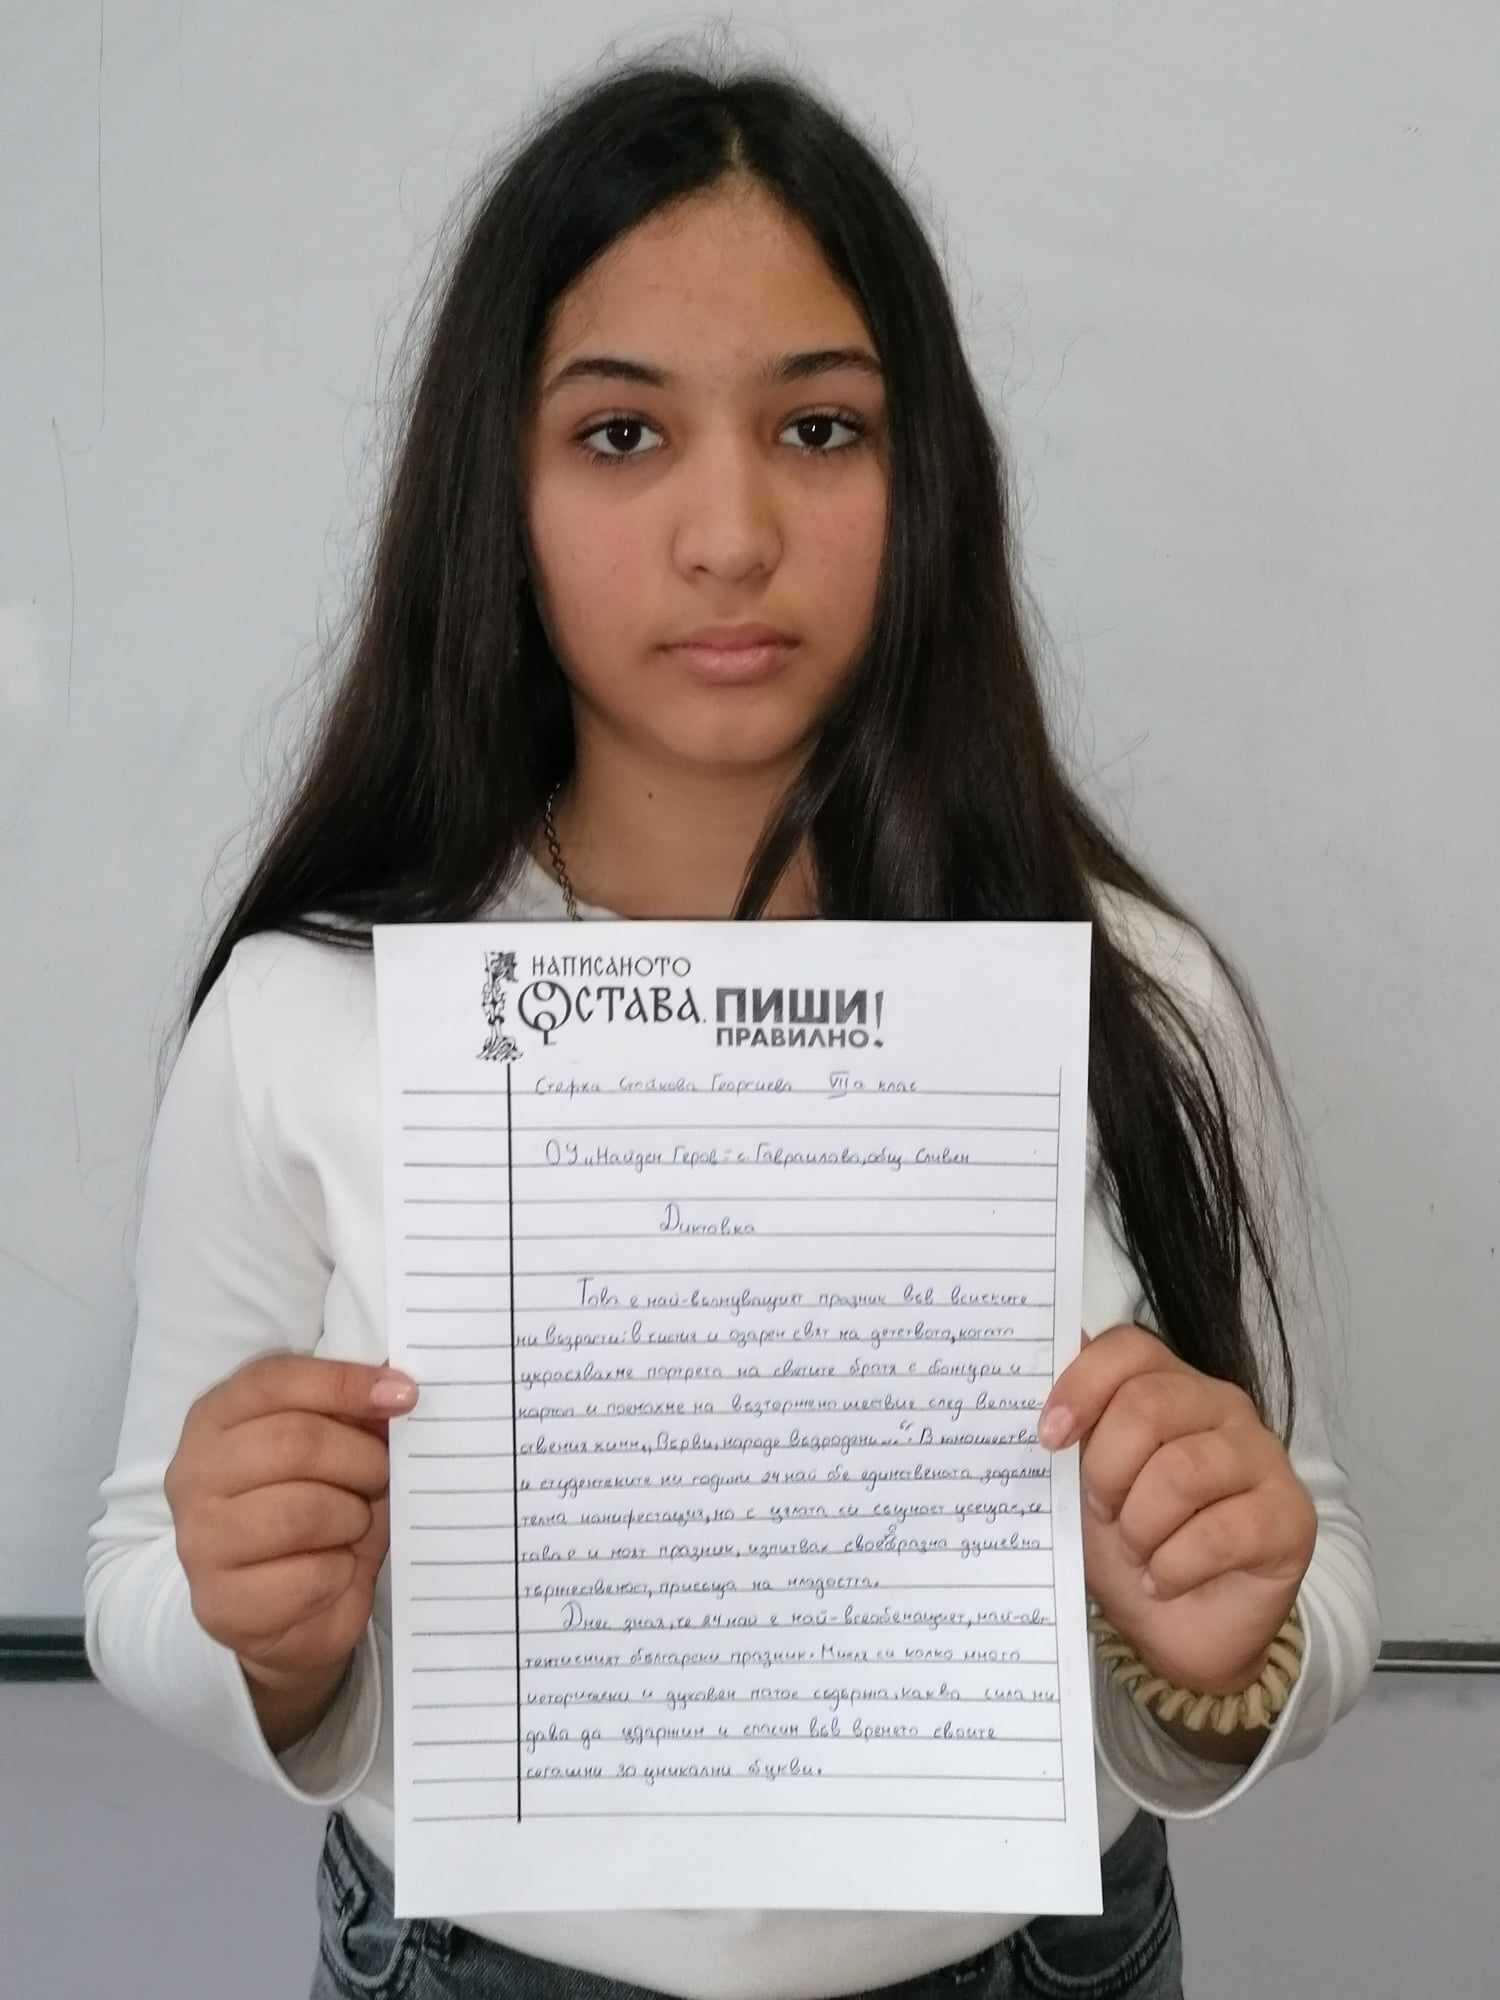 НАПИСАНОТО
ОСТАВА. ПИШИ
ПРАВИЛНО!
Стефка Стойкова Георгиева VII а клас
ОУ „Найден Геров“ - с. Гавраилово, общ. Сливен
Диктовка
Това е най-вълнуващият празник във всичките
ни възрасти: в синия и озарен свят на детството, когато
украсявахме портрета на светите братя с божури и
карти и поемахме на възторжено шествие след величе-
ствения химн „Върви, народе възродени...“. В юношество
и студентските ни години 24 май бе единствената задължи-
телна манифестация, но с цялата си същност усещах, че
това е и моят празник, изпитвах своеобразна душевна
тържественост, присъща на младостта.
Днес зная, че 24 май е най-всеобемащият, най-авт
тентисният български празник. Мисля си колко много
исторически и духовен патос съдържа, каква сила ни
дава да удържим и спасим във времето своите
сегашни за уникални букви.